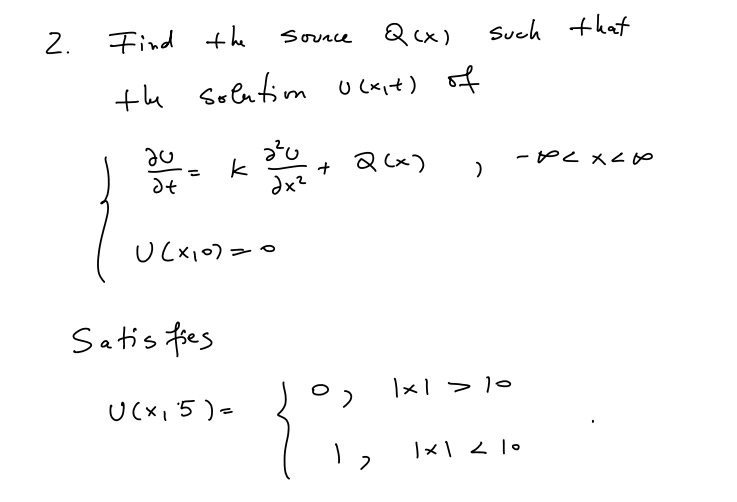 2. Find the source Q(x) such that
the solution U(x,t) of
{ ∂U/∂t = k ∂²U/∂x² + Q(x) , -∞ < x < ∞
U(x,0) = 0
Satisfies
U(x,5) = { 0, |x| > 10
1, |x| < 10 .